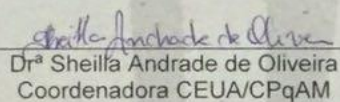 Sheilla Andrade de Oliveira
Drª Sheilla Andrade de Oliveira
Coordenadora CEUA/CPqAM